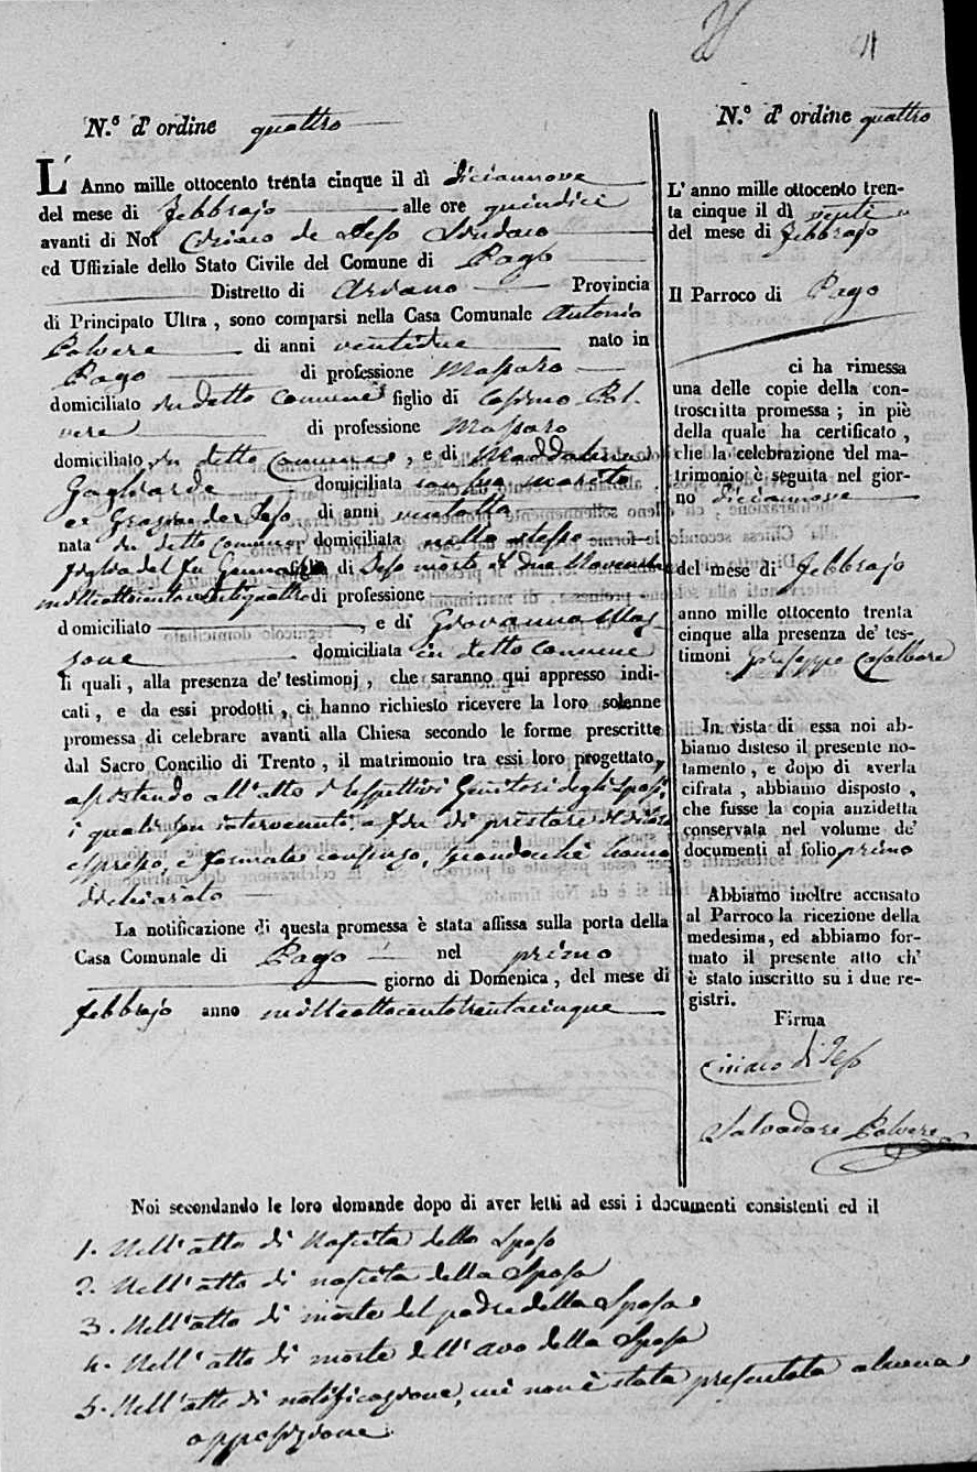 N.° d' ordine quattro
L' Anno mille ottocento trenta cinque il dì diciannove
del mese di febbrajo alle ore quindici
avanti di Noi Ciriaco de Leso Sindaco
ed Uffiziale dello Stato Civile del Comune di Pago
Distretto di Ariano Provincia
di Principato Ultra, sono comparsi nella Casa Comunale Antonio
Polvere di anni ventidue nato in
Pago di professione Massaro
domiciliato in detto Comune figlio di Cosimo Pol-
vere di professione Massaro
domiciliato in detto Comune, e di Maddalena
Gagliarde domiciliata con suo marito
e Grazia de Leso di anni ventotto
nata in detto Comune domiciliata nello stesso
figlia del fu Gennaro di Leso morto il due Novembre
mille ottocento ventiquattro di professione
domiciliato , e di Giovanna Maz-
zone domiciliata in detto Comune
li quali, alla presenza de' testimonj, che saranno qui appresso indi-
cati, e da essi prodotti, ci hanno richiesto ricevere la loro solenne
promessa di celebrare avanti alla Chiesa secondo le forme prescritte
dal Sacro Concilio di Trento, il matrimonio tra essi loro progettato,
assistendo all'atto i rispettivi Genitori degli Sposi,
i quali son intervenuti a fin di prestare il di loro
espresso, e formale consenso, secondocchè hanno
dichiarato
La notificazione di questa promessa è stata affissa sulla porta della
Casa Comunale di Pago nel primo
giorno di Domenica, del mese di
febbrajo anno mille ottocento trentacinque
N.° d' ordine quattro
L' anno mille ottocento tren-
ta cinque il dì venti
del mese di febbrajo
Il Parroco di Pago
ci ha rimessa
una delle copie della con-
troscritta promessa; in piè
della quale ha certificato,
che la celebrazione del ma-
trimonio è seguita nel gior-
no diciannove
del mese di febbrajo
anno mille ottocento trenta
cinque alla presenza de' tes-
timoni Giuseppe Casalbore
In vista di essa noi ab-
biamo disteso il presente no-
tamento, e dopo di averla
cifrata, abbiamo disposto,
che fusse la copia anzidetta
conservata nel volume de'
documenti al folio primo
Abbiamo inoltre accusato
al Parroco la ricezione della
medesima, ed abbiamo for-
mato il presente atto ch'
è stato inscritto su i due re-
gistri.
Firma
Ciriaco di Leso
Salvadore Polvere
Noi secondando le loro domande dopo di aver letti ad essi i documenti consistenti ed il
1. Nell'atto di Nascita dello Sposo
2. Nell'atto di nascita della Sposa
3. Nell'atto di morte del padre della Sposa
4. Nell'atto di morte dell'avo della Sposa
5. Nell'atto di notificazione, cui non è stata presentata alcuna
opposizione